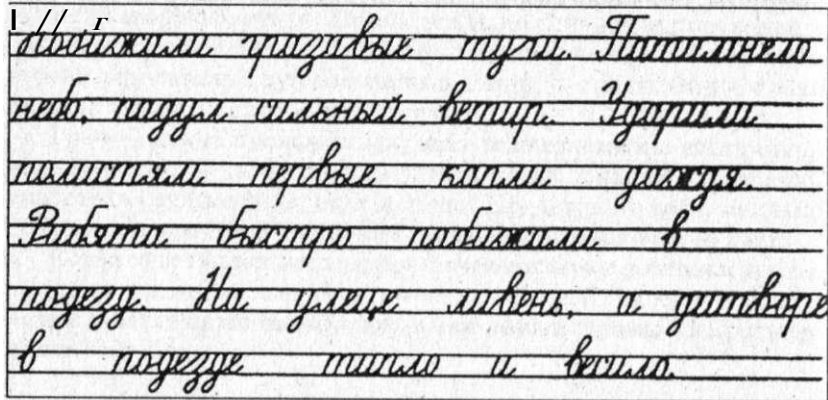 Побижали гразавые тучи. Патамнело
небо, падул сильный ветир. Ударили
полистям первые капли даждя.
Рибята быстро пабижали в
подезд. На улеце ливень, а дитворе
в подезде типло и весило.